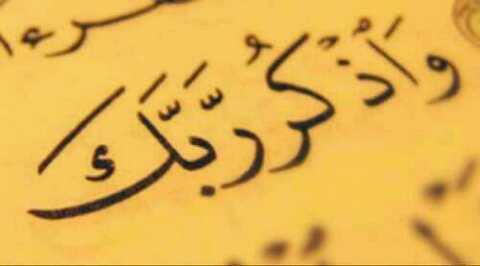 وَاذْكُر رَّبَّكَ